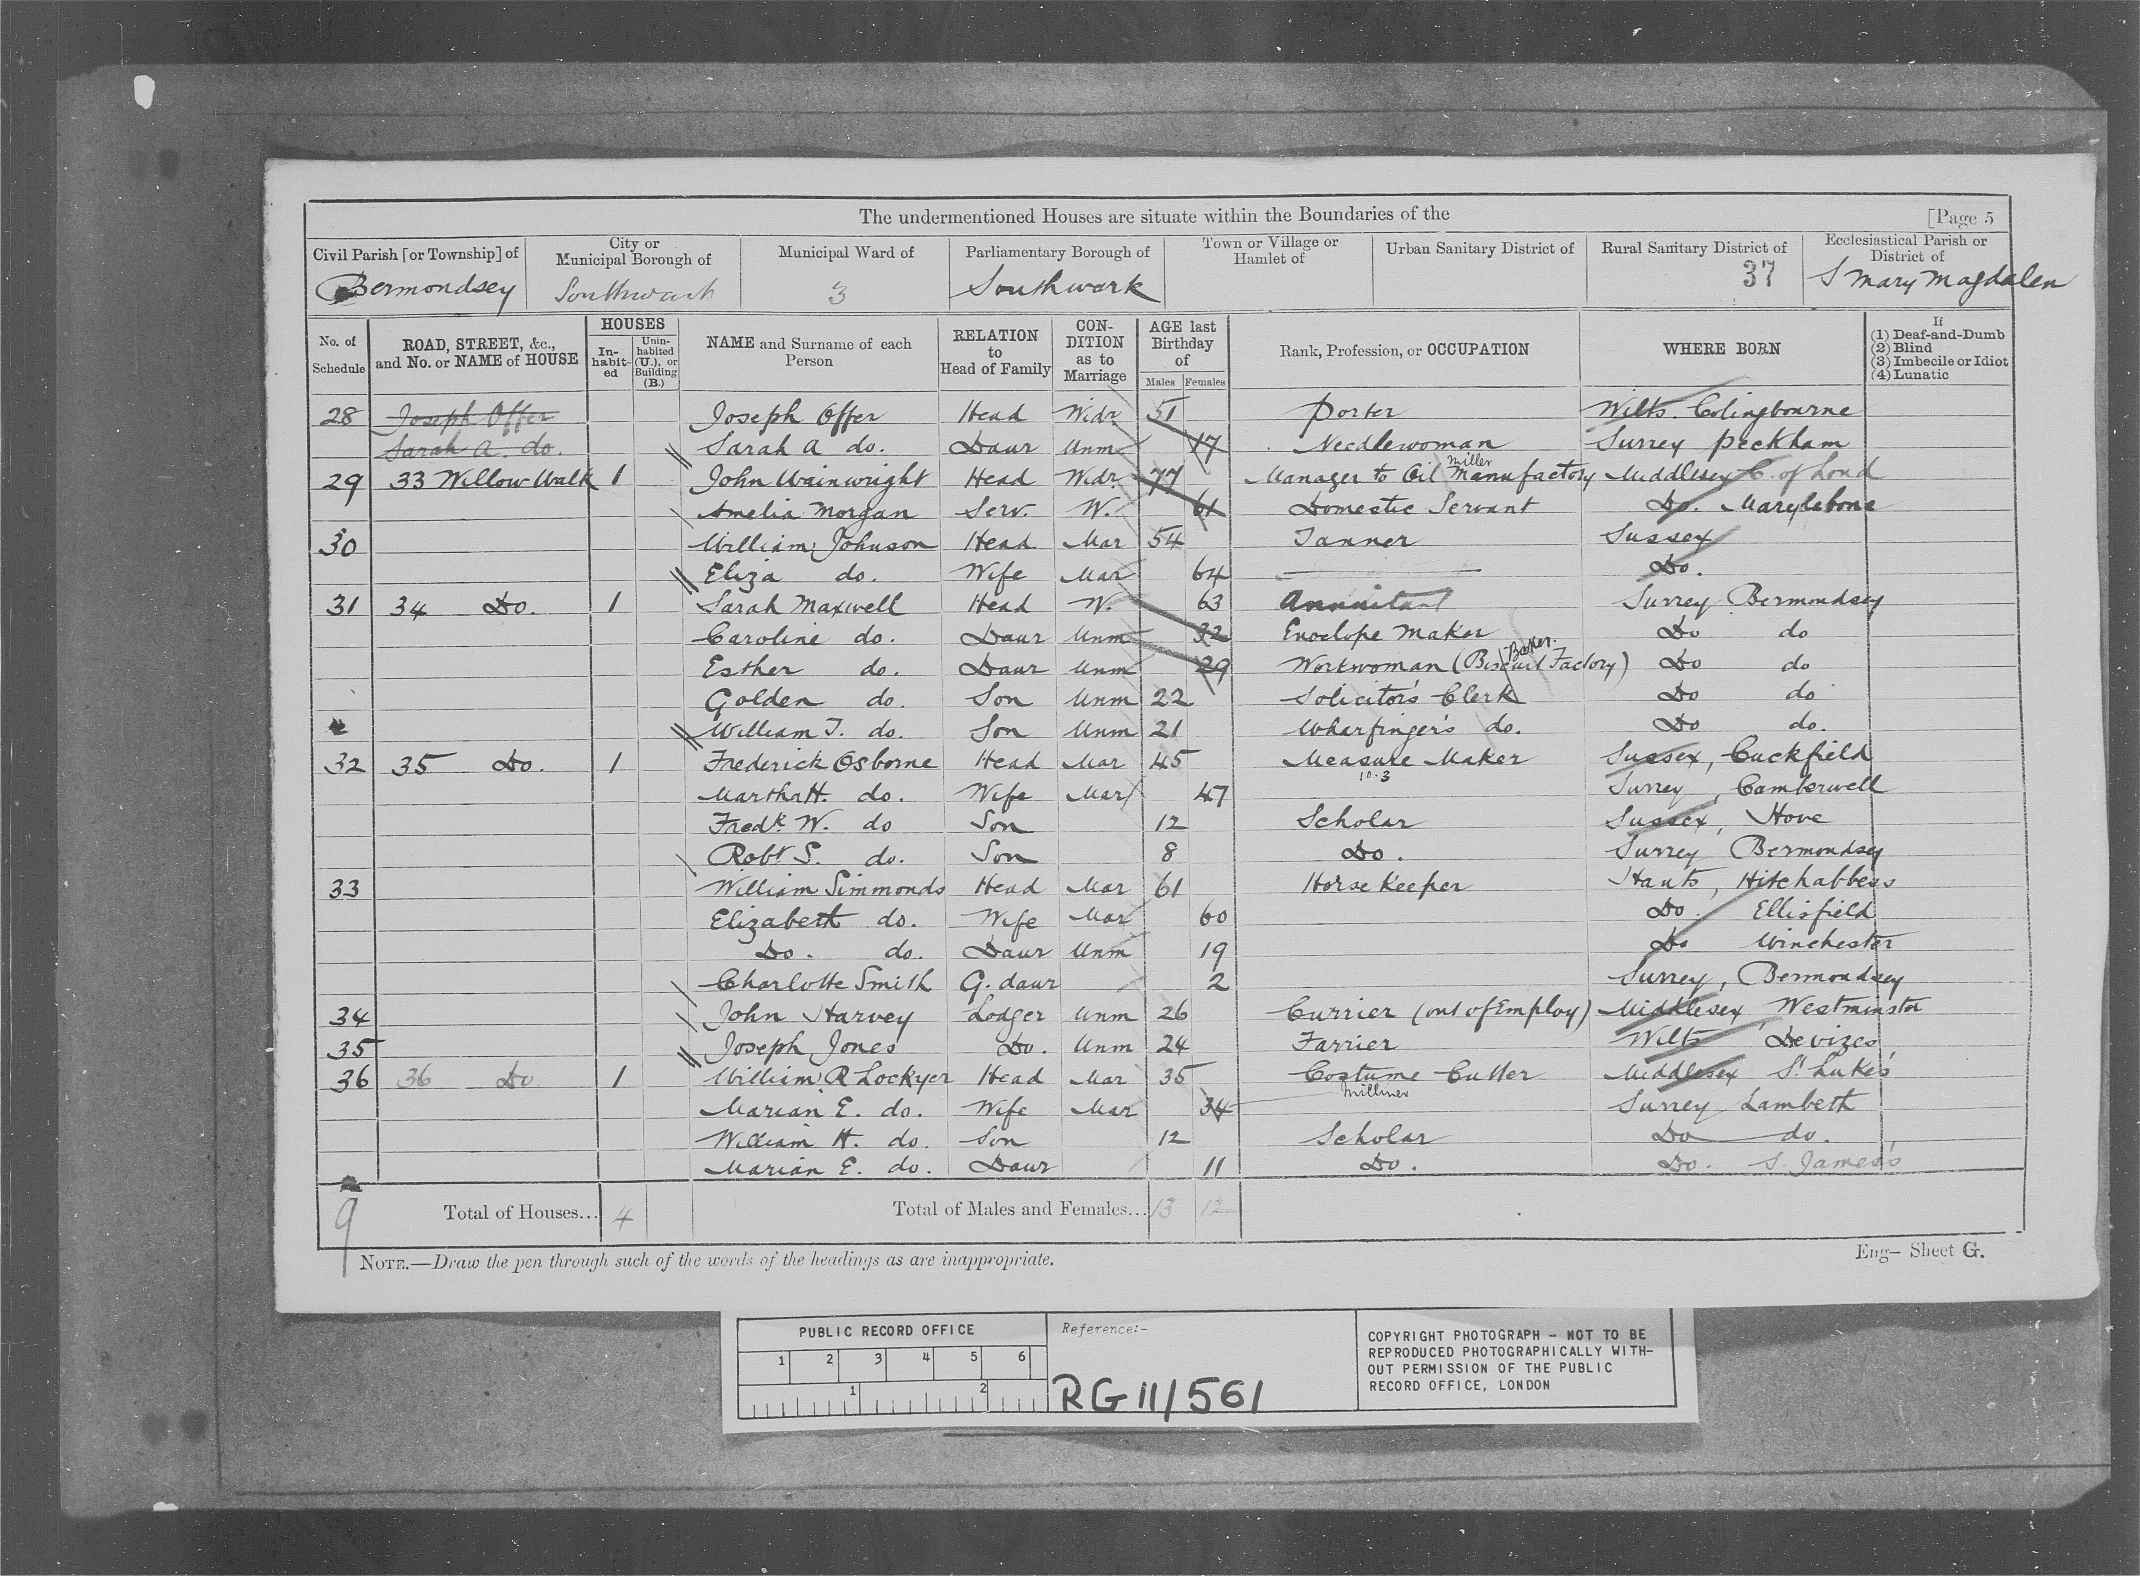 The undermentioned Houses are situate within the Boundaries of the [Page 5
Civil Parish [or Township] of City or Municipal Borough of Municipal Ward of Parliamentary Borough of Town or Village or Hamlet of Urban Sanitary District of Rural Sanitary District of Ecclesiastical Parish or District of
Bermondsey Southwark 3 Southwark 37 S Mary Magdalen
No. of Schedule ROAD, STREET, &c., and No. or NAME of HOUSE HOUSES Inhabited Uninhabited (U.), or Building (B.) NAME and Surname of each Person RELATION to Head of Family CONDITION as to Marriage AGE last Birthday of Males Females Rank, Profession, or OCCUPATION WHERE BORN If (1) Deaf-and-Dumb (2) Blind (3) Imbecile or Idiot (4) Lunatic
28 Joseph Offer Joseph Offer Head Widr 51 Porter Wilts. Colingbourne
Sarah A. do. Sarah A do. Daur Unm 17 Needlewoman Surrey Peckham
29 33 Willow Walk 1 John Wainwright Head Widr. 77 Manager to Oil Miller Manufactory Middlesex C. of Lond
Amelia Morgan Serv. W. 61 Domestic Servant Do. Marylebone
30 William Johnson Head Mar 54 Tanner Sussex
Eliza do. Wife Mar 64 Do.
31 34 Do. 1 Sarah Maxwell Head W. 63 Annuitant Surrey Bermondsey
Caroline do. Daur Unm 32 Envelope Maker Do do
Esther do. Daur Unm 29 Workwoman (Biscuit Factory) Baker. Do do
Golden do. Son Unm 22 Solicitor's Clerk Do do
William T. do. Son Unm 21 Wharfinger's do. Do do.
32 35 Do. 1 Frederick Osborne Head Mar 45 Measure Maker Sussex, Cuckfield
10.3
Martha H. do. Wife Mar 47 Surrey, Camberwell
Fredk. W. do Son 12 Scholar Sussex, Hove
Robt S. do. Son 8 Do. Surrey Bermondsey
33 William Simmonds Head Mar 61 Horse Keeper Hants, Hitchabbess
Elizabeth do. Wife Mar 60 Do. Ellisfield
Do. do. Daur Unm 19 Do Winchester
Charlotte Smith G. daur 2 Surrey, Bermondsey
34 John Harvey Lodger Unm 26 Currier (out of Employ) Middlesex Westminster
35 Joseph Jones Do. Unm 24 Farrier Wilts Devizes
36 36 Do 1 William R Lockyer Head Mar 35 Costume Cutter Middlesex St. Luke's
Marian E. do. Wife Mar 34 Milliner Surrey Lambeth
William H. do. Son 12 Scholar Do do.
Marian E. do. Daur 11 Do. Do. S. James's
9 Total of Houses... 4 Total of Males and Females... 13 12
NOTE.—Draw the pen through such of the words of the headings as are inappropriate.
Eng— Sheet G.
PUBLIC RECORD OFFICE
1 2 3 4 5 6
1 2
Reference:-
RG 11/561
COPYRIGHT PHOTOGRAPH - NOT TO BE
REPRODUCED PHOTOGRAPHICALLY WITH-
OUT PERMISSION OF THE PUBLIC
RECORD OFFICE, LONDON